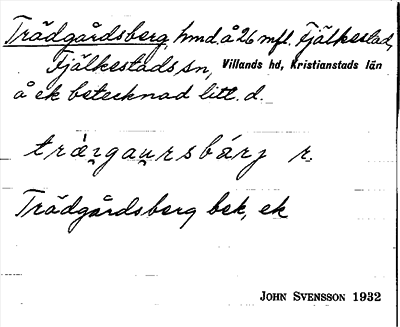 Trädgårdsberg, hmd. å 26 mfl. Fjälkestad,
Fjälkestads sn, Villands hd, Kristianstads län
å ek betecknad litt. d.
träi̯rgau̯rsbärj r.
Trädgårdsberg bek, ek
JOHN SVENSSON 1932